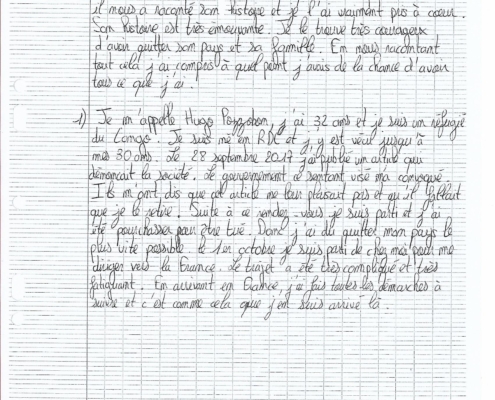 il nous a raconté son histoire et je l'ai vraiment pris à coeur.
Son histoire est très émouvante. Je le trouve très courageux
d'avoir quitter son pays et sa famille. En nous racontant
tout cela j'ai compris à quel point j'avais de la chance d'avoir
tous ce que j'ai.
1) Je m'appelle Hugo, j'ai 32 ans et je suis un réfugié
du Congo. Je suis né en RDC et j'y est vécu jusqu'à
mes 30 ans. Le 28 septembre 2017 j'ai publié un article qui
dénoncait la société. Le gouvernement se sentant visé m'a convoqué.
Ils m'ont dis que cet article ne leur plaisait pas et qu'il fallait
que je le retire. Suite à ce rendez-vous je suis parti et j'ai
été pourchasser pour être tué. Donc j'ai du quitter mon pays le
plus vite possible. Le 1er octobre je suis parti de chez moi pour me
diriger vers la France. Le trajet a été très compliqué et très
fatiguant. En arrivant en France, j'ai fais toutes les démarches à
suivre et c'est comme cela que j'en suis arrivé là.